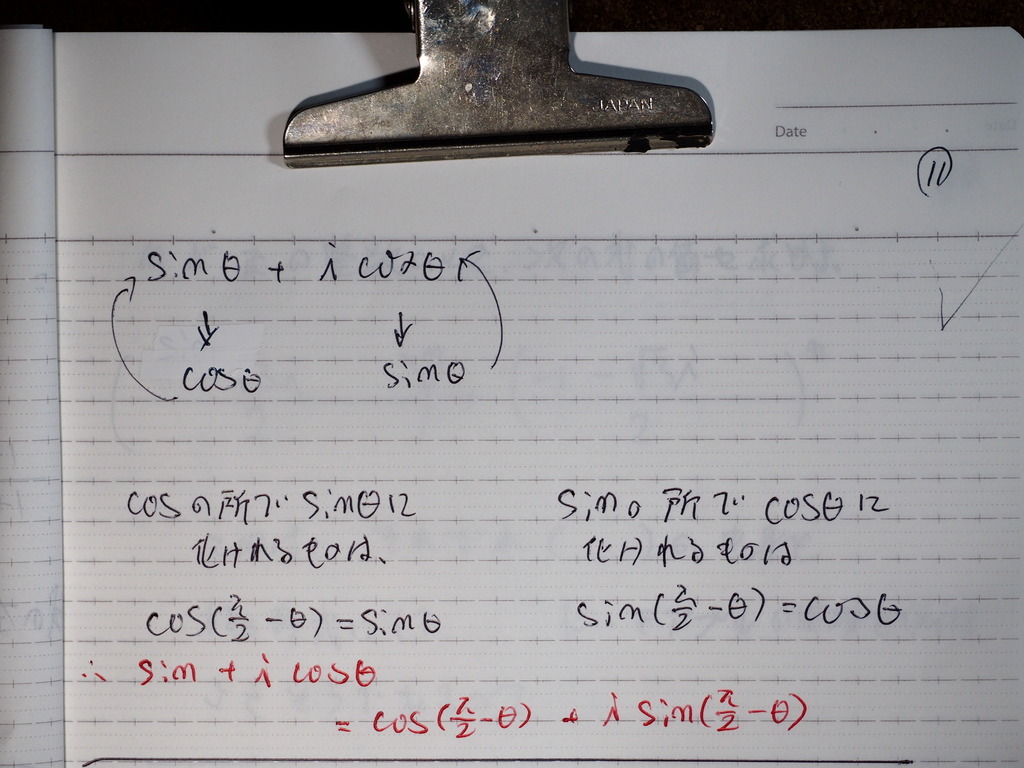 JAPAN
Date
⑪
sinθ + i cosθ
↓ ↓
cosθ sinθ
cosの所で sinθに
化けれるものは、
cos(π/2 - θ) = sinθ
sinの所で cosθに
化けれるものは
sin(π/2 - θ) = cosθ
∴ sin + i cosθ
= cos(π/2 - θ) + i sin(π/2 - θ)